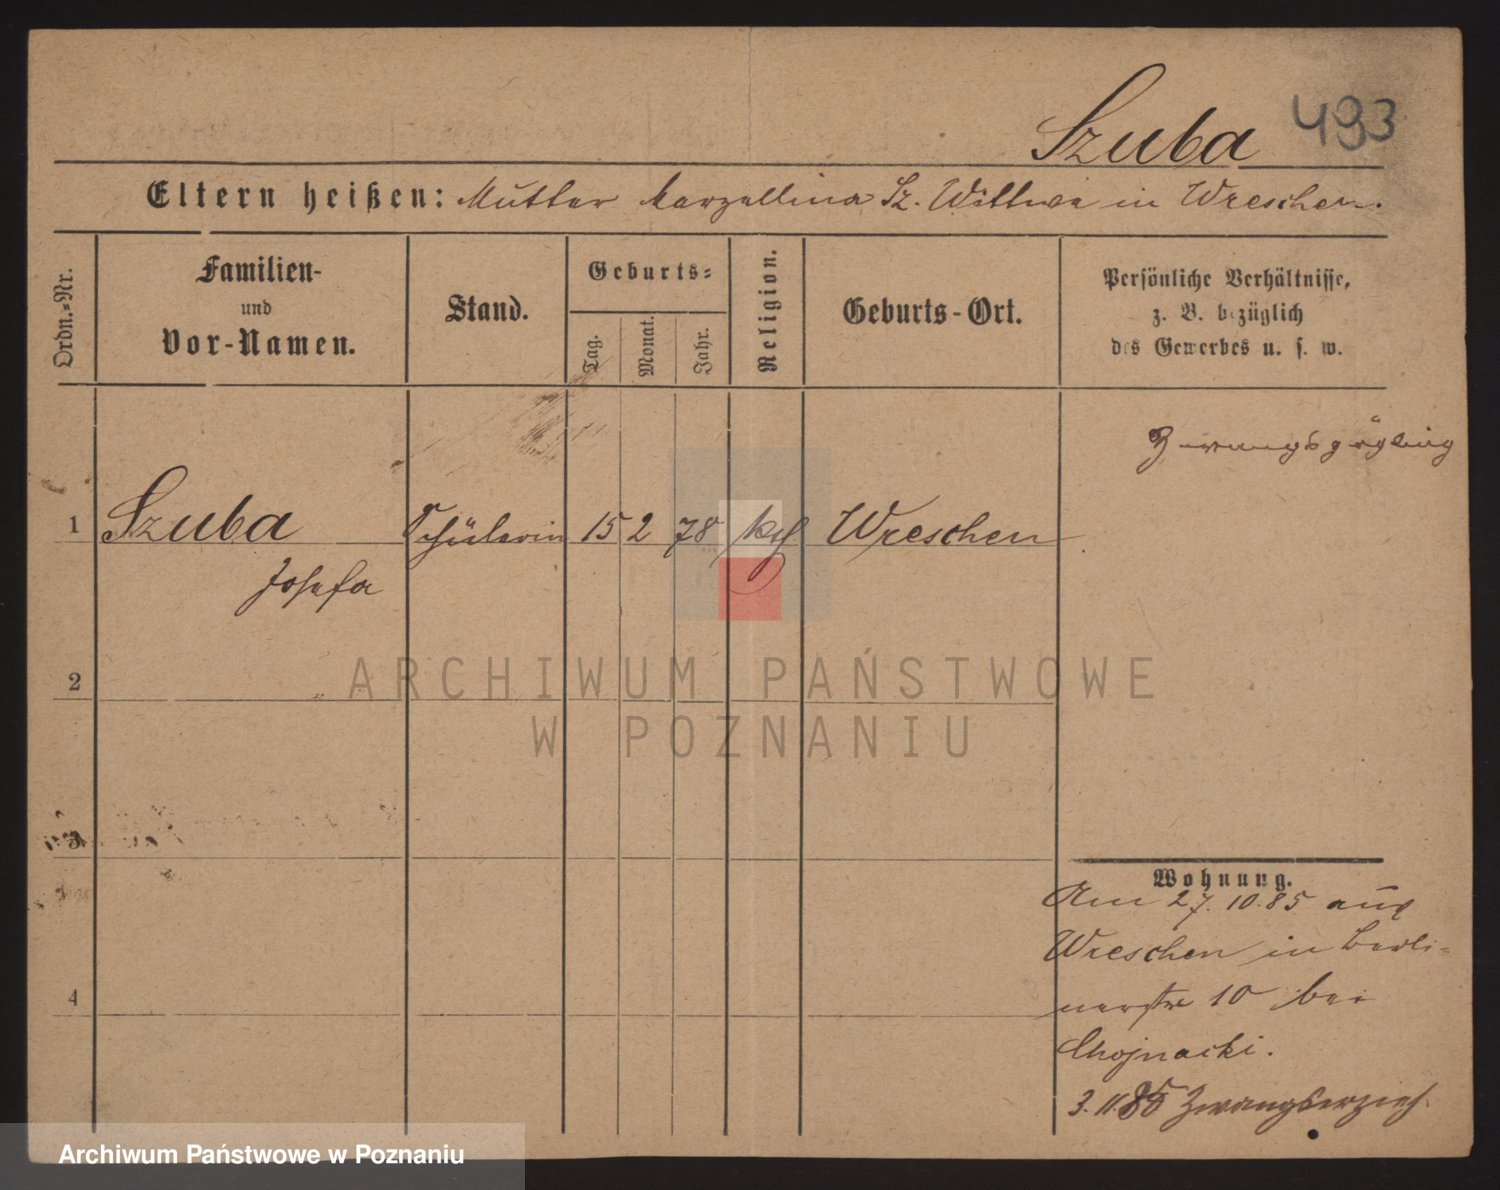 Szuba 493
Eltern heißen: Mutter Marzellina Sz. Wittwe in Wreschen.
Ordn.-Nr.
Familien-
und
Vor-Namen.
Stand.
Geburts-
Tag.
Monat.
Jahr.
Religion.
Geburts-Ort.
Persönliche Verhältnisse,
z. B. bezüglich
des Gewerbes u. s. w.
Zwangszögling
1 Szuba Schülerin 15 2 78 kth Wreschen
Josefa
2
ARCHIWUM PAŃSTWOWE
W POZNANIU
3
Wohnung.
Am 27.10.85 aus
Wreschen in Berli-
nerstr 10 bei
4
Chojnacki.
3.11.85 Zwangserzieh.
Archiwum Państwowe w Poznaniu